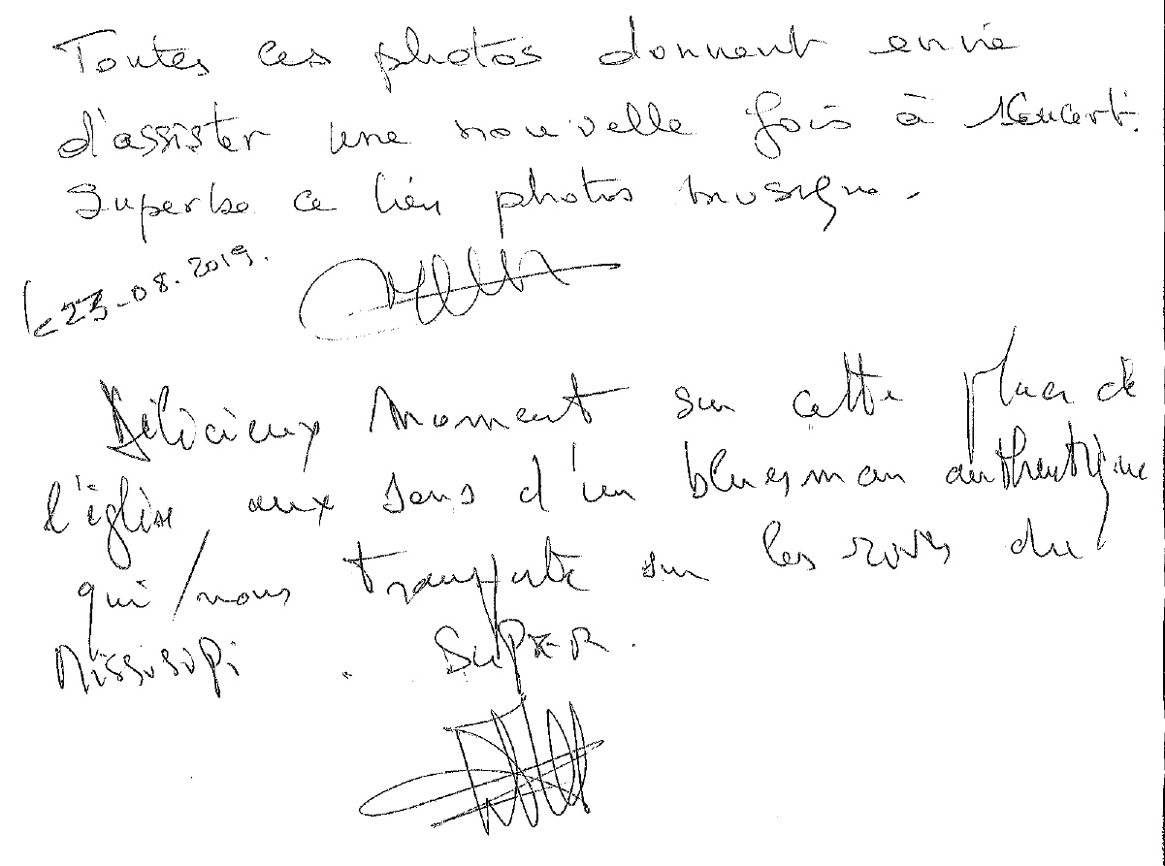 Toutes ces photos donnent envie
d'assister une nouvelle fois à 1 Concert.
Superbe ce lien photos musique.
Le 23-08.2019.
Délicieux Moment sur cette place de
l'église aux sons d'un bluesman authentique
qui / nous transporte sur les rives du
Missisipi. SUPER.